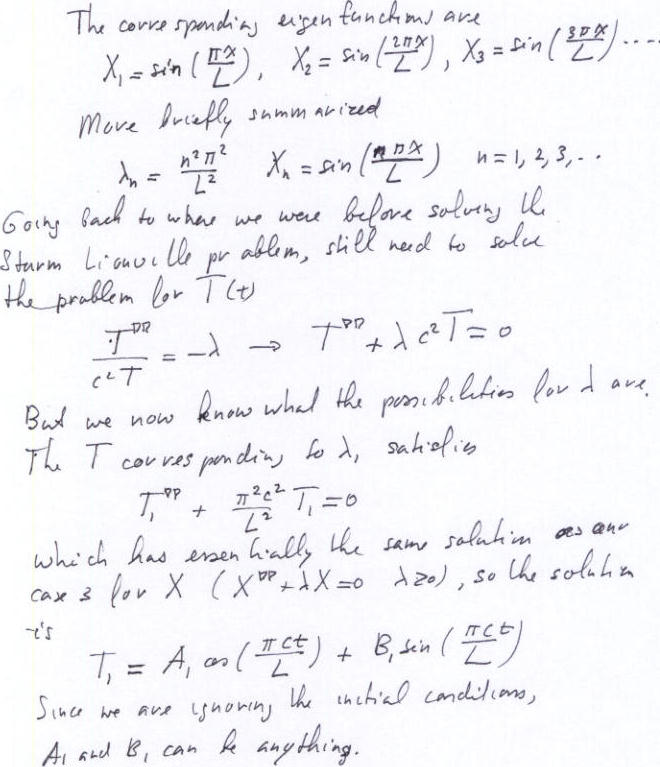 The corresponding eigenfunctions are
X₁ = sin (πx/L), X₂ = sin (2πx/L), X₃ = sin (3πx/L) ....
More briefly summarized
λₙ = n²π²/L² Xₙ = sin (nπx/L) n = 1, 2, 3, ..
Going back to where we were before solving the
Sturm Liouville problem, still need to solve
the problem for T(t)
T''/c²T = -λ → T'' + λc²T = 0
But we now know what the possibilities for λ are.
The T corresponding to λ₁ satisfies
T₁'' + π²c²/L² T₁ = 0
which has essentially the same solution as our
case 3 for X (X'' + λX = 0 λ≥0), so the solution
is
T₁ = A₁ cos (πct/L) + B₁ sin (πct/L)
Since we are ignoring the initial conditions,
A₁ and B₁ can be anything.